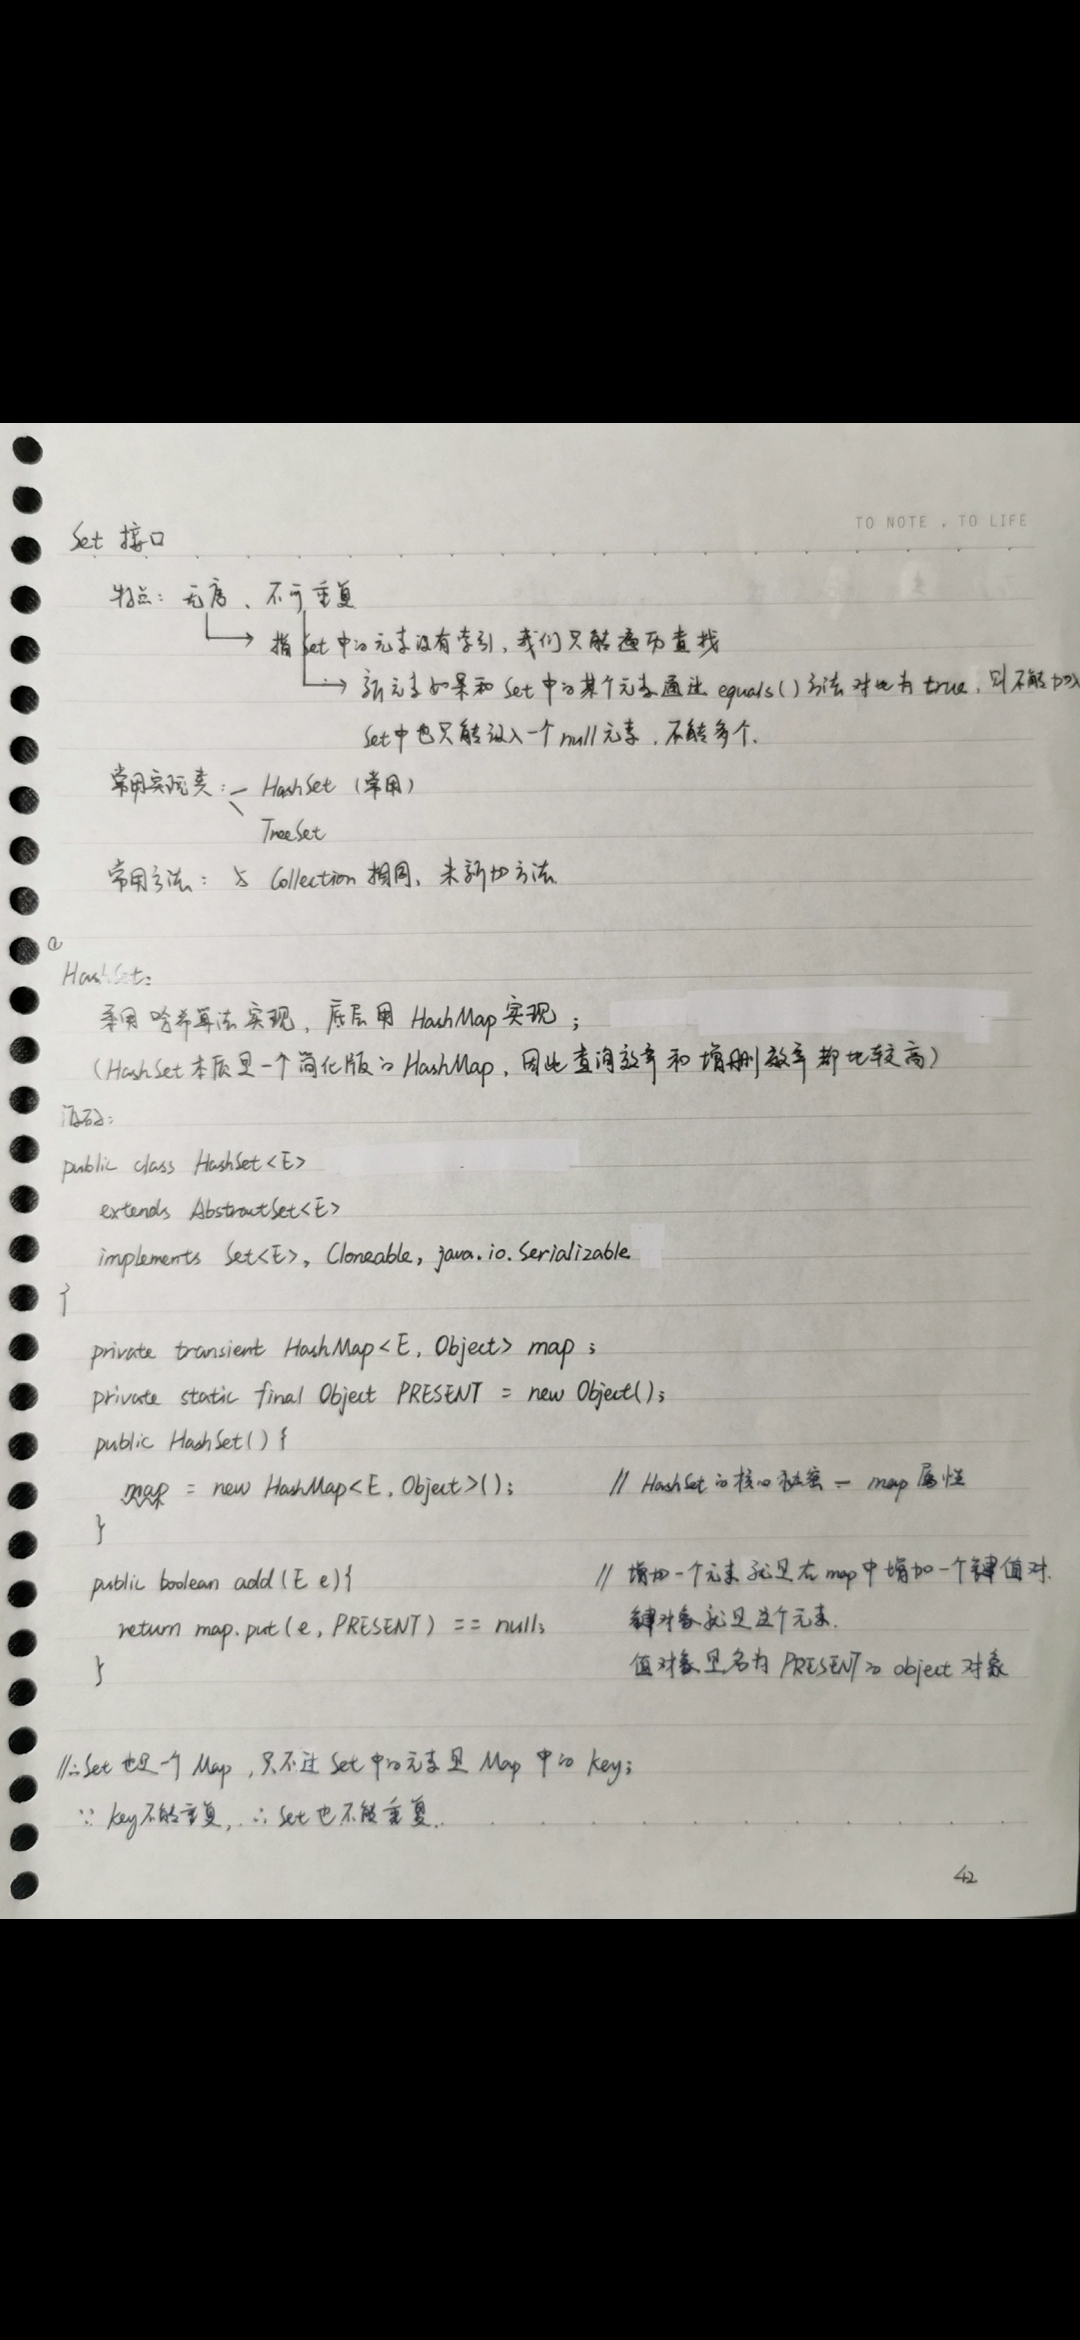 TO NOTE , TO LIFE
Set 接口
特点: 无序、不可重复
指 Set 中的元素没有索引, 我们只能遍历查找
新元素如果和 Set 中的某个元素通过 equals() 方法对比为 true, 则不能加入
Set中也只能放入一个null元素, 不能多个.
常用实现类: HashSet (常用)
TreeSet
常用方法: 与 Collection 相同, 未新加方法
@
HashSet:
采用哈希算法实现, 底层用 HashMap 实现;
(HashSet本质是一个简化版的HashMap, 因此查询效率和增删效率都比较高)
源码:
public class HashSet<E>
extends AbstractSet<E>
implements Set<E>, Cloneable, java.io.Serializable
{
private transient HashMap<E, Object> map ;
private static final Object PRESENT = new Object();
public HashSet() {
map = new HashMap<E, Object>(); // HashSet的核心秘密 — map 属性
}
public boolean add(E e){ // 增加一个元素就是在map中增加一个键值对.
return map.put(e, PRESENT) == null; 键对象就是这个元素.
} 值对象是名为 PRESENT的 object 对象
//∴Set 也是一个 Map, 只不过 Set 中的元素是 Map 中的 key;
∵ key不能重复, ∴ Set也不能重复.
42